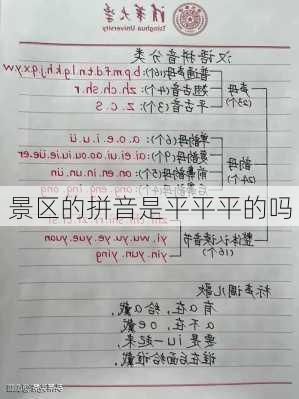 清华大学
Tsinghua University
汉语拼音分类
普通声母(16个): b.p.m.f.d.t.n.l.g.k.h.j.q.x.y.w
声母
(23个)
翘舌音(4个): zh.ch.sh.r
平舌音(3个): z.c.s
单韵母(6个): a.o.e.i.u.ü
复韵母(9个): ai.ei.ui.ao.ou.iu.ie.üe.er
韵母
(24个)
an.en.in.un.ün
景区的拼音是平平平的吗
yi.wu.yu.ye.yue.yuan
整体认读音节
(16个)
yin.yun.ying
标声调儿歌
有a在,给a戴,
a不在,oe戴,
要是iu一起来,
谁在后面给谁戴。